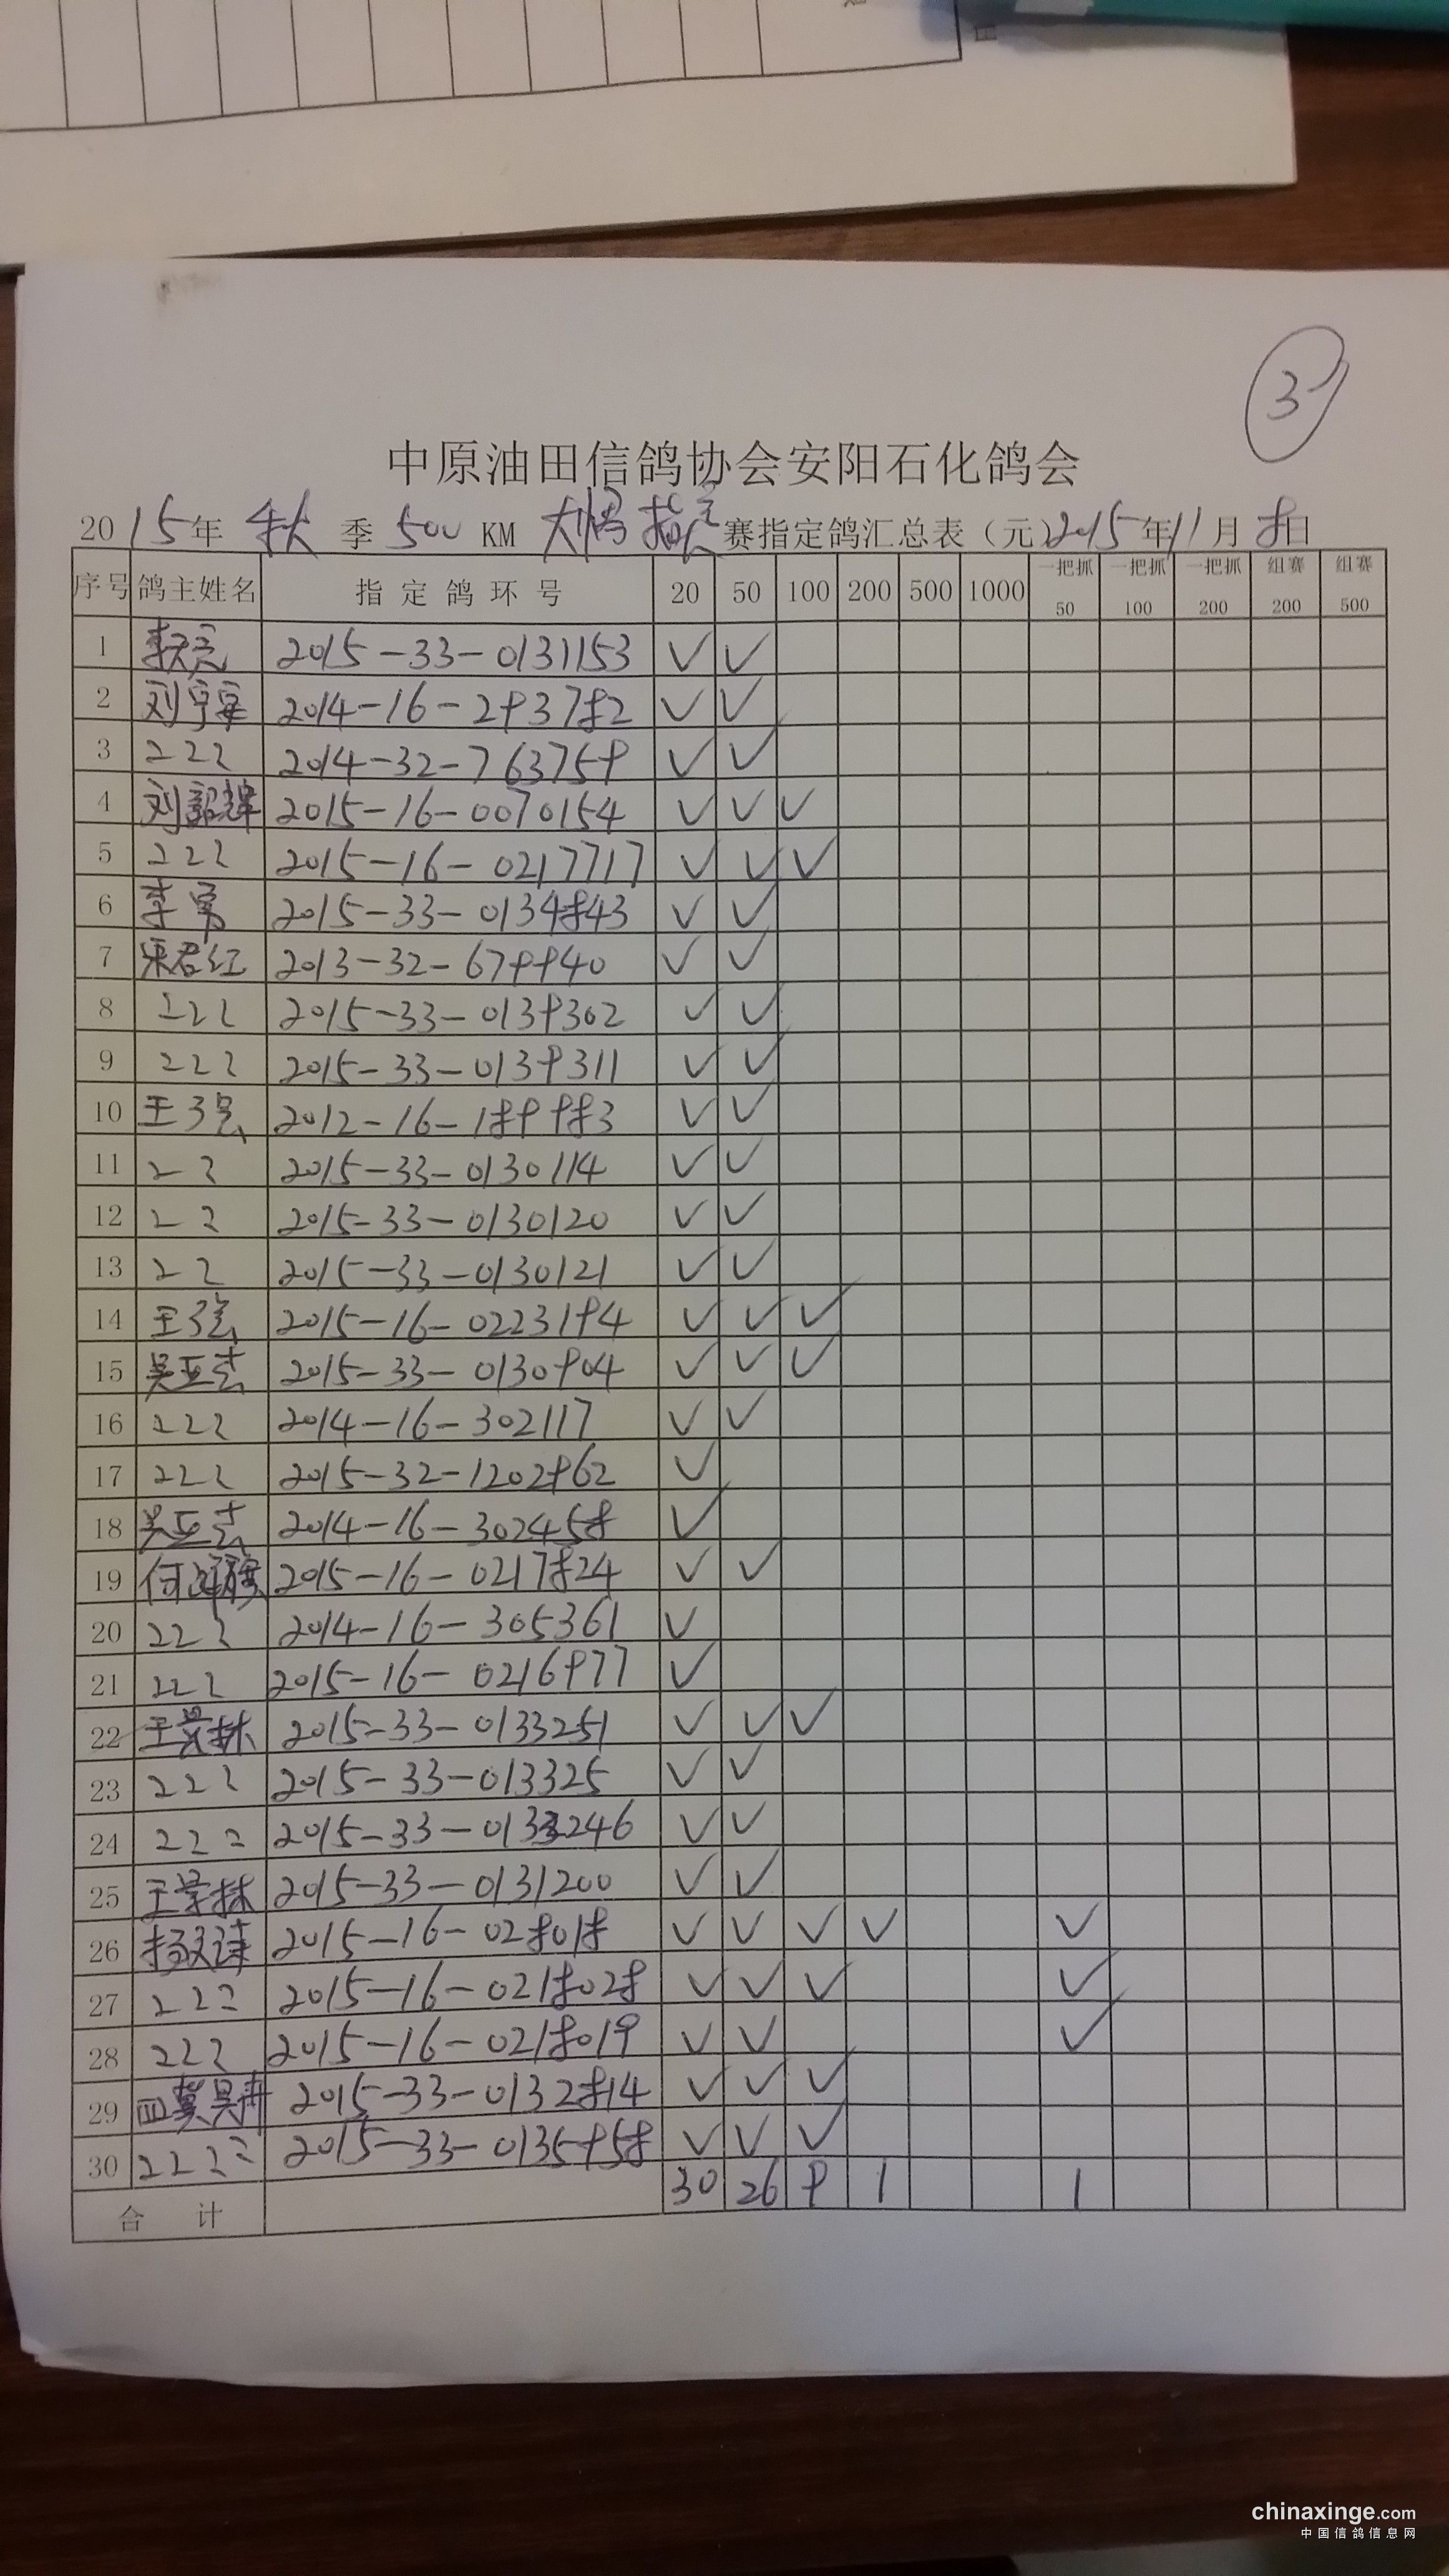 3
中原油田信鸽协会安阳石化鸽会
2015年 秋 季 500 KM 大棚指定 赛指定鸽汇总表（元）2015年11月8日
序号 鸽主姓名 指定鸽环号 20 50 100 200 500 1000 一把抓50 一把抓100 一把抓200 组赛200 组赛500
1 2015-33-0131153 √ √
2 刘宇军 2014-16-293782 √ √
3 〃 2014-32-763759 √ √
4 刘韶辉 2015-16-0070154 √ √ √
5 〃 2015-16-0217717 √ √ √
6 李勇 2015-33-0134843 √ √
7 宋君红 2013-32-679940 √ √
8 〃 2015-33-0139302 √ √
9 〃 2015-33-0139311 √ √
10 王强 2012-16-189983 √ √
11 〃 2015-33-0130114 √ √
12 〃 2015-33-0130120 √ √
13 〃 2015-33-0130121 √ √
14 王强 2015-16-0223194 √ √ √
15 吴亚杰 2015-33-0130904 √ √ √
16 〃 2014-16-302117 √ √
17 〃 2015-32-1202962 √
18 吴亚杰 2014-16-302458 √
19 何 2015-16-0217824 √ √
20 〃 2014-16-305361 √
21 〃 2015-16-0216977 √
22 王景林 2015-33-0133251 √ √ √
23 〃 2015-33-013325 √ √
24 〃 2015-33-0133246 √ √
25 王景林 2015-33-0131200 √ √
26 杨文涛 2015-16-028018 √ √ √ √ √
27 〃 2015-16-0218028 √ √ √ √
28 〃 2015-16-0218019 √ √ √
29 2015-33-0132814 √ √ √
30 〃 2015-33-0135958 √ √ √
合计 30 26 9 1 1
chinaxinge.com
中国信鸽信息网